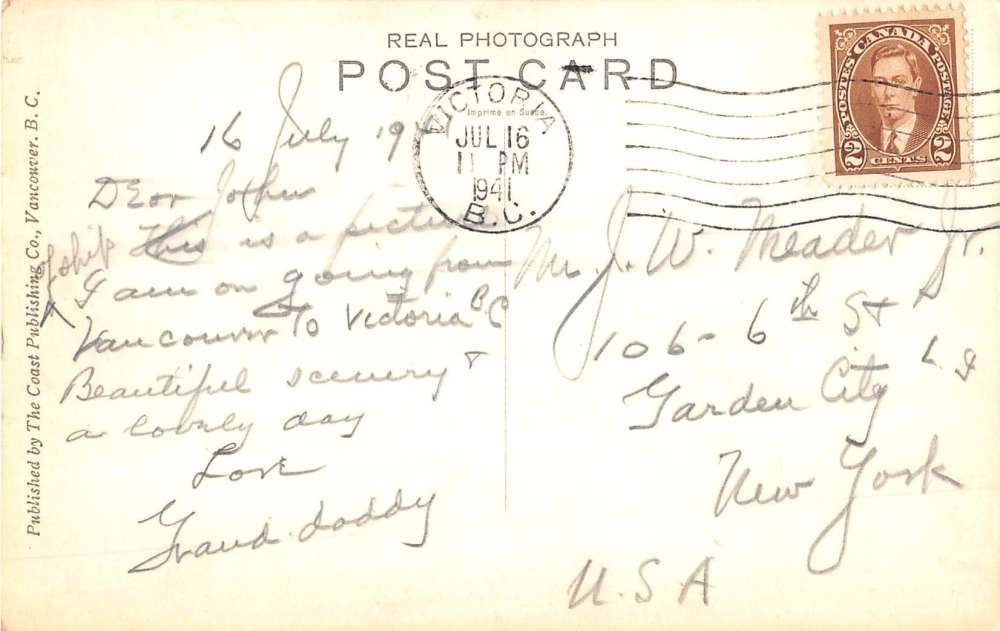 REAL PHOTOGRAPH
POST CARD
VICTORIA
Imprimé en Suède.
JUL 16
11 PM
1941
B.C.
CANADA
POSTES POSTAGE
2 CENTS 2
16 July 19
Dear
This is a picture
of ship
I am on going from
Vancouver to Victoria B C
Beautiful scenery &
a lovely day
Love
Grand-daddy
Mr. J. W. Meader Jr.
106-6th St
Garden City L I
New York
U.S A
Published by The Coast Publishing Co., Vancouver. B. C.